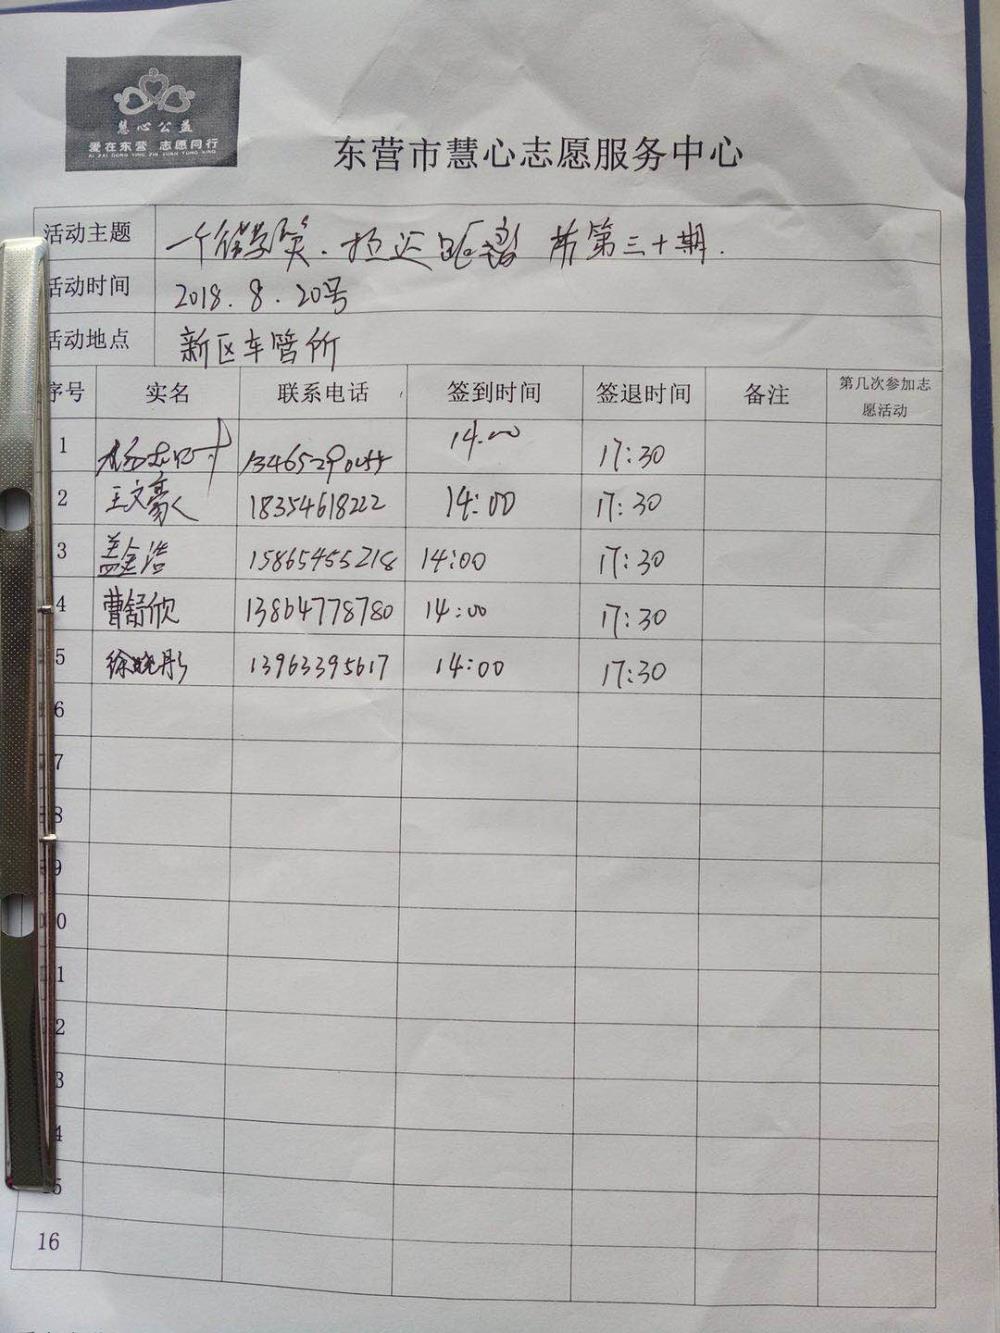 慧心公益
爱在东营 志愿同行
AI ZAI DONG YING ZHI YUAN TONG XING
东营市慧心志愿服务中心
活动主题 一个微笑. 拉近距离 第三十期.
活动时间 2018.8.20号
活动地点 新区车管所
序号 实名 联系电话 签到时间 签退时间 备注 第几次参加志愿活动
1 14.00 17:30
2 王文豪 18354618222 14:00 17:30
3 盖金浩 15865455218 14:00 17:30
4 曹舒欣 13864778780 14:00 17:30
5 徐晓彤 13963395617 14:00 17:30
6
7
8
9
0
1
2
3
4
5
16